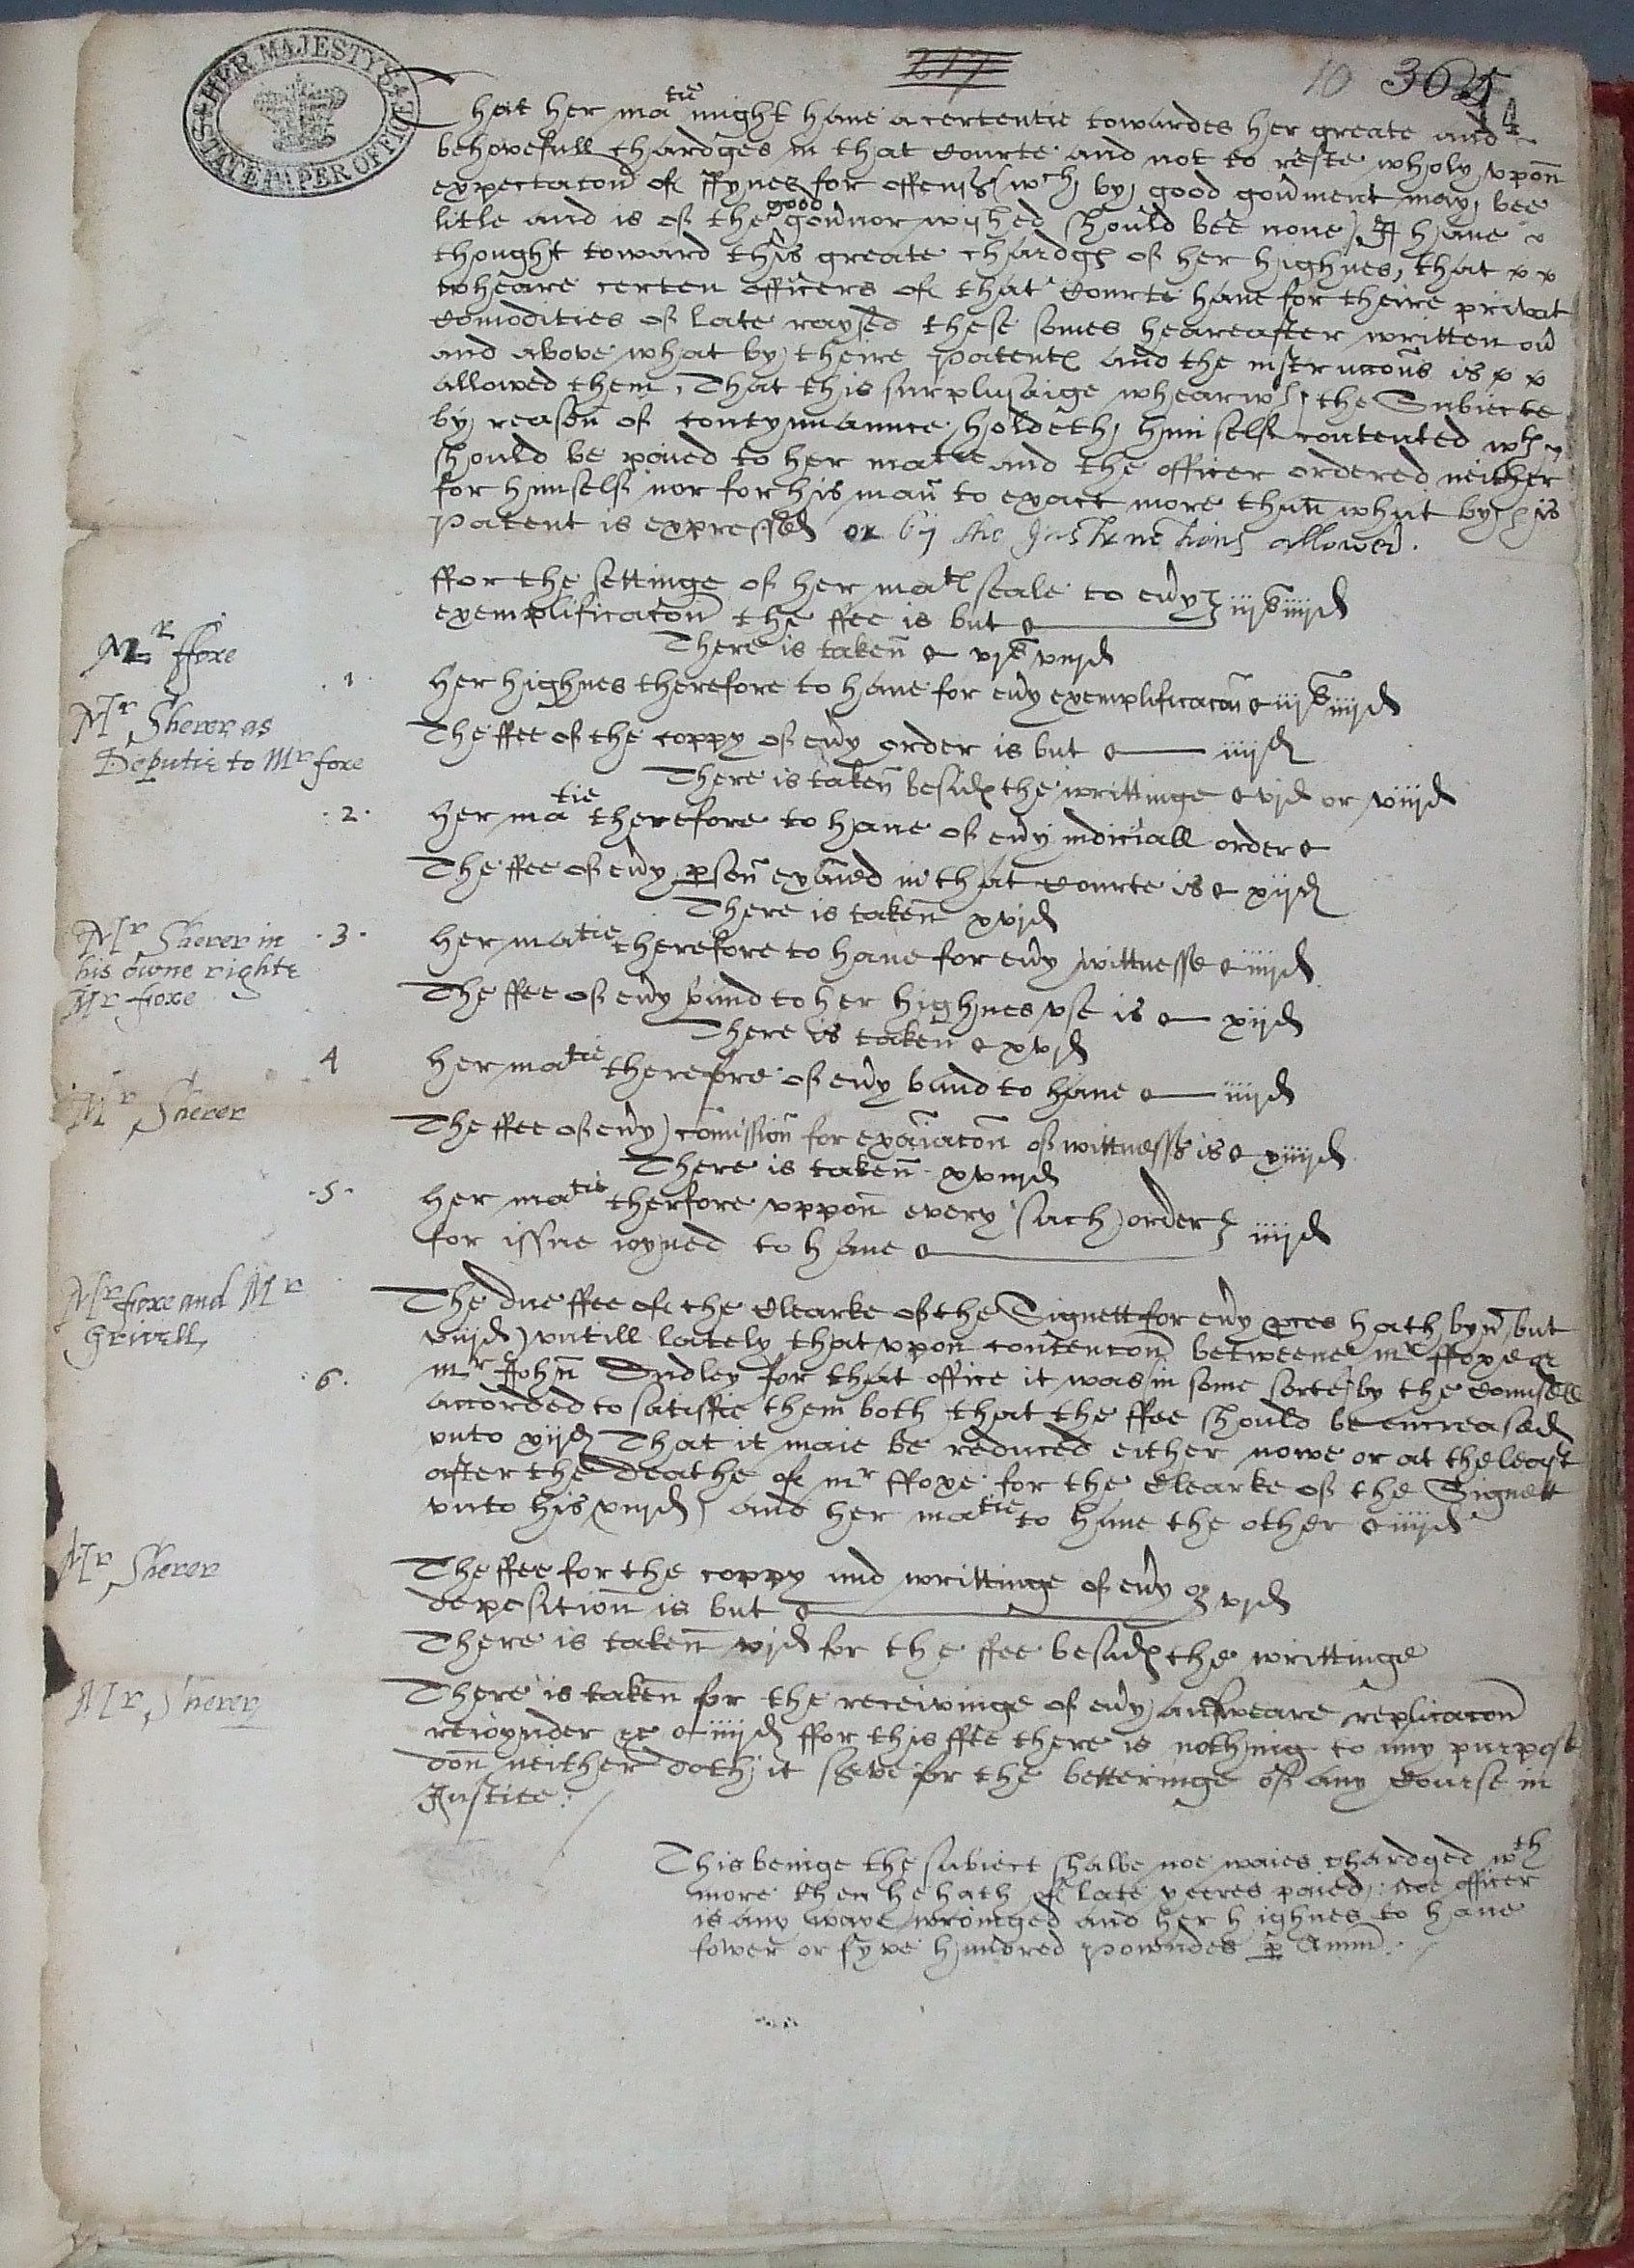 HER MAJESTY'S STATE PAPER OFFICE
217
10 365
14
That her matie might have a certentie towardes her greate and
behovefull chardges in that Courte and not to reste wholy vpon
expectacon of ffynes for offences (wch by good goverment may bee
litle and is of the good governor wished should bee none) I have
thought toward this greate chardge of her highnes, that x x
wheare certen officers of that Courte have for theire privat
Comodities of late raysed these somes heareafter written ou
and above what by theire patentes and the instruccons is x x
allowed them, That this surplusaige whearwth the Subiecte
by reason of contynuaunce holdeth himself contented wth
should be paied to her matie and the officer ordered neither
for himself nor for his man to exact more than what by his
patent is expressed or by the Instructions allowed.
ffor the settinge of her mates seale to euy
exemplificacon the ffee is but iijs iiijd
There is taken vjs viijd
Mr ffoxe
.1. Her highnes therefore to have for euy exemplificacon iijs iiijd
Mr Sherer as
Deputie to Mr foxe
The ffee of the coppy of euy order is but iiijd
There is taken besides the writtinge vjd or viijd
.2. Her matie therefore to have of euy iudiciall order
The ffee of euy pson examed in that Courte is xijd
There is taken xvjd
Mr Sherer in
his owne righte
Mr foxe
.3. Her matie therefore to have for euy wittnesse iiijd
The ffee of euy band to her highnes vse is xijd
There is taken xvjd
4 Her matie therefore of euy band to have iiijd
Mr Sherer
The ffee of euy comission for examiacon of wittnesses is xiiijd
There is taken xviijd
.5. Her matie therfore vppon every such order
for issue ioyned to have iiijd
Mr foxe and Mr
Grivell
The due ffee of the Clearke of the Signett for euy pces hath byn but
viijd vntill lately that vpon contencon betweene mr ffoxe &
.6. mr John Dudley for that office it was in some sorte by the Counsell
accorded to satisfie them both that the ffee should be encreased
vnto xijd That it maie be reduced either nowe or at the least
after the deathe of mr ffoxe for the Clearke of the Signett
vnto his viijd and her matie to have the other iiijd
Mr Sherer
The ffee for the coppy and writtinge of euy
deposition is but vjd
There is taken vjd for the ffee besides the writtinge
Mr Sherer
There is taken for the receivinge of euy answeare replicacon
reioynder &c iiijd ffor this ffee there is nothing to any purpose
don neither doth it serve for the betteringe of any Course in
Justice:
This beinge the subiect shalbe noe waies chardged wth
more then he hath of late yeeres paied: noe officer
is any waye wronged and her highnes to have
fower or fyve hundred powndes p Annu.